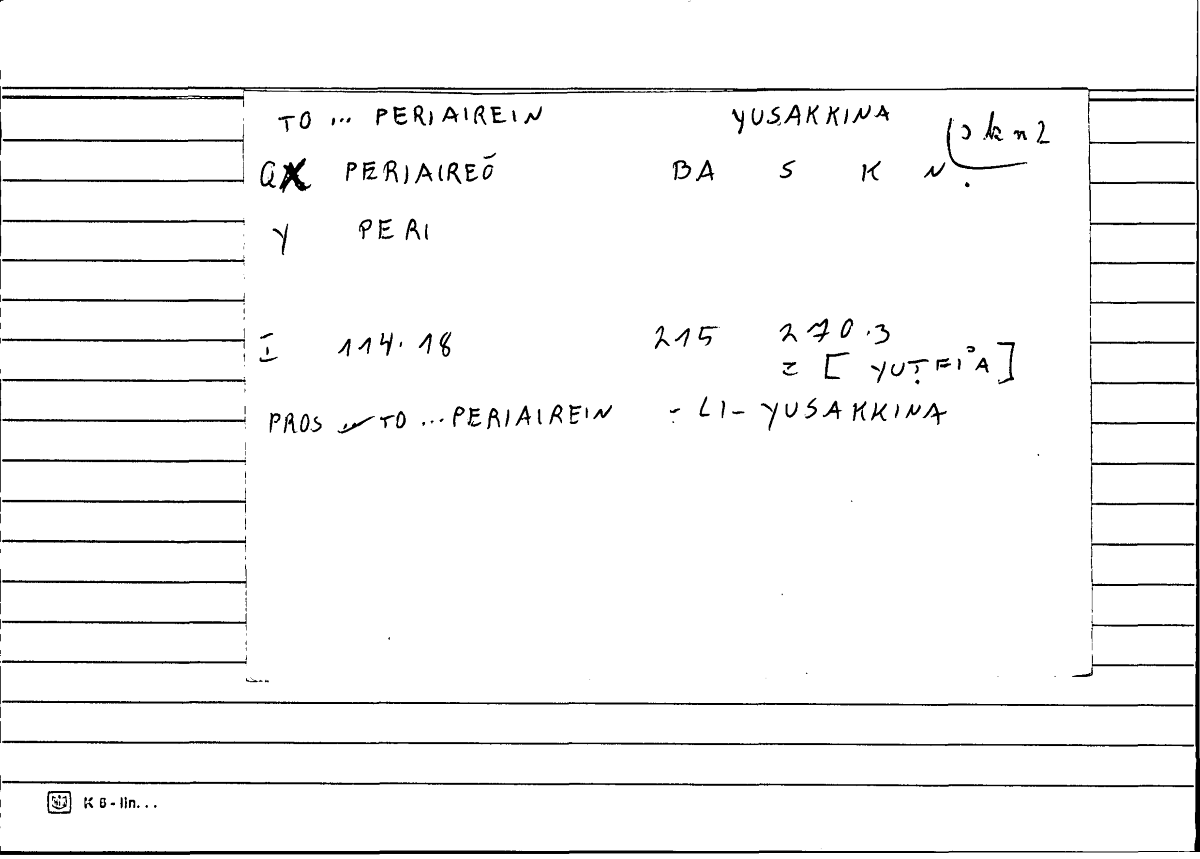 TO ... PERIAIREIN YUSAKKINA
ax PERIAIREŌ BA S K N. skn2
Y PERI
I 114.18 215 270.3
= [ YUṬFI'A ]
PROS TO ... PERIAIREIN - LI- YUSAKKINA
K 6-lin...